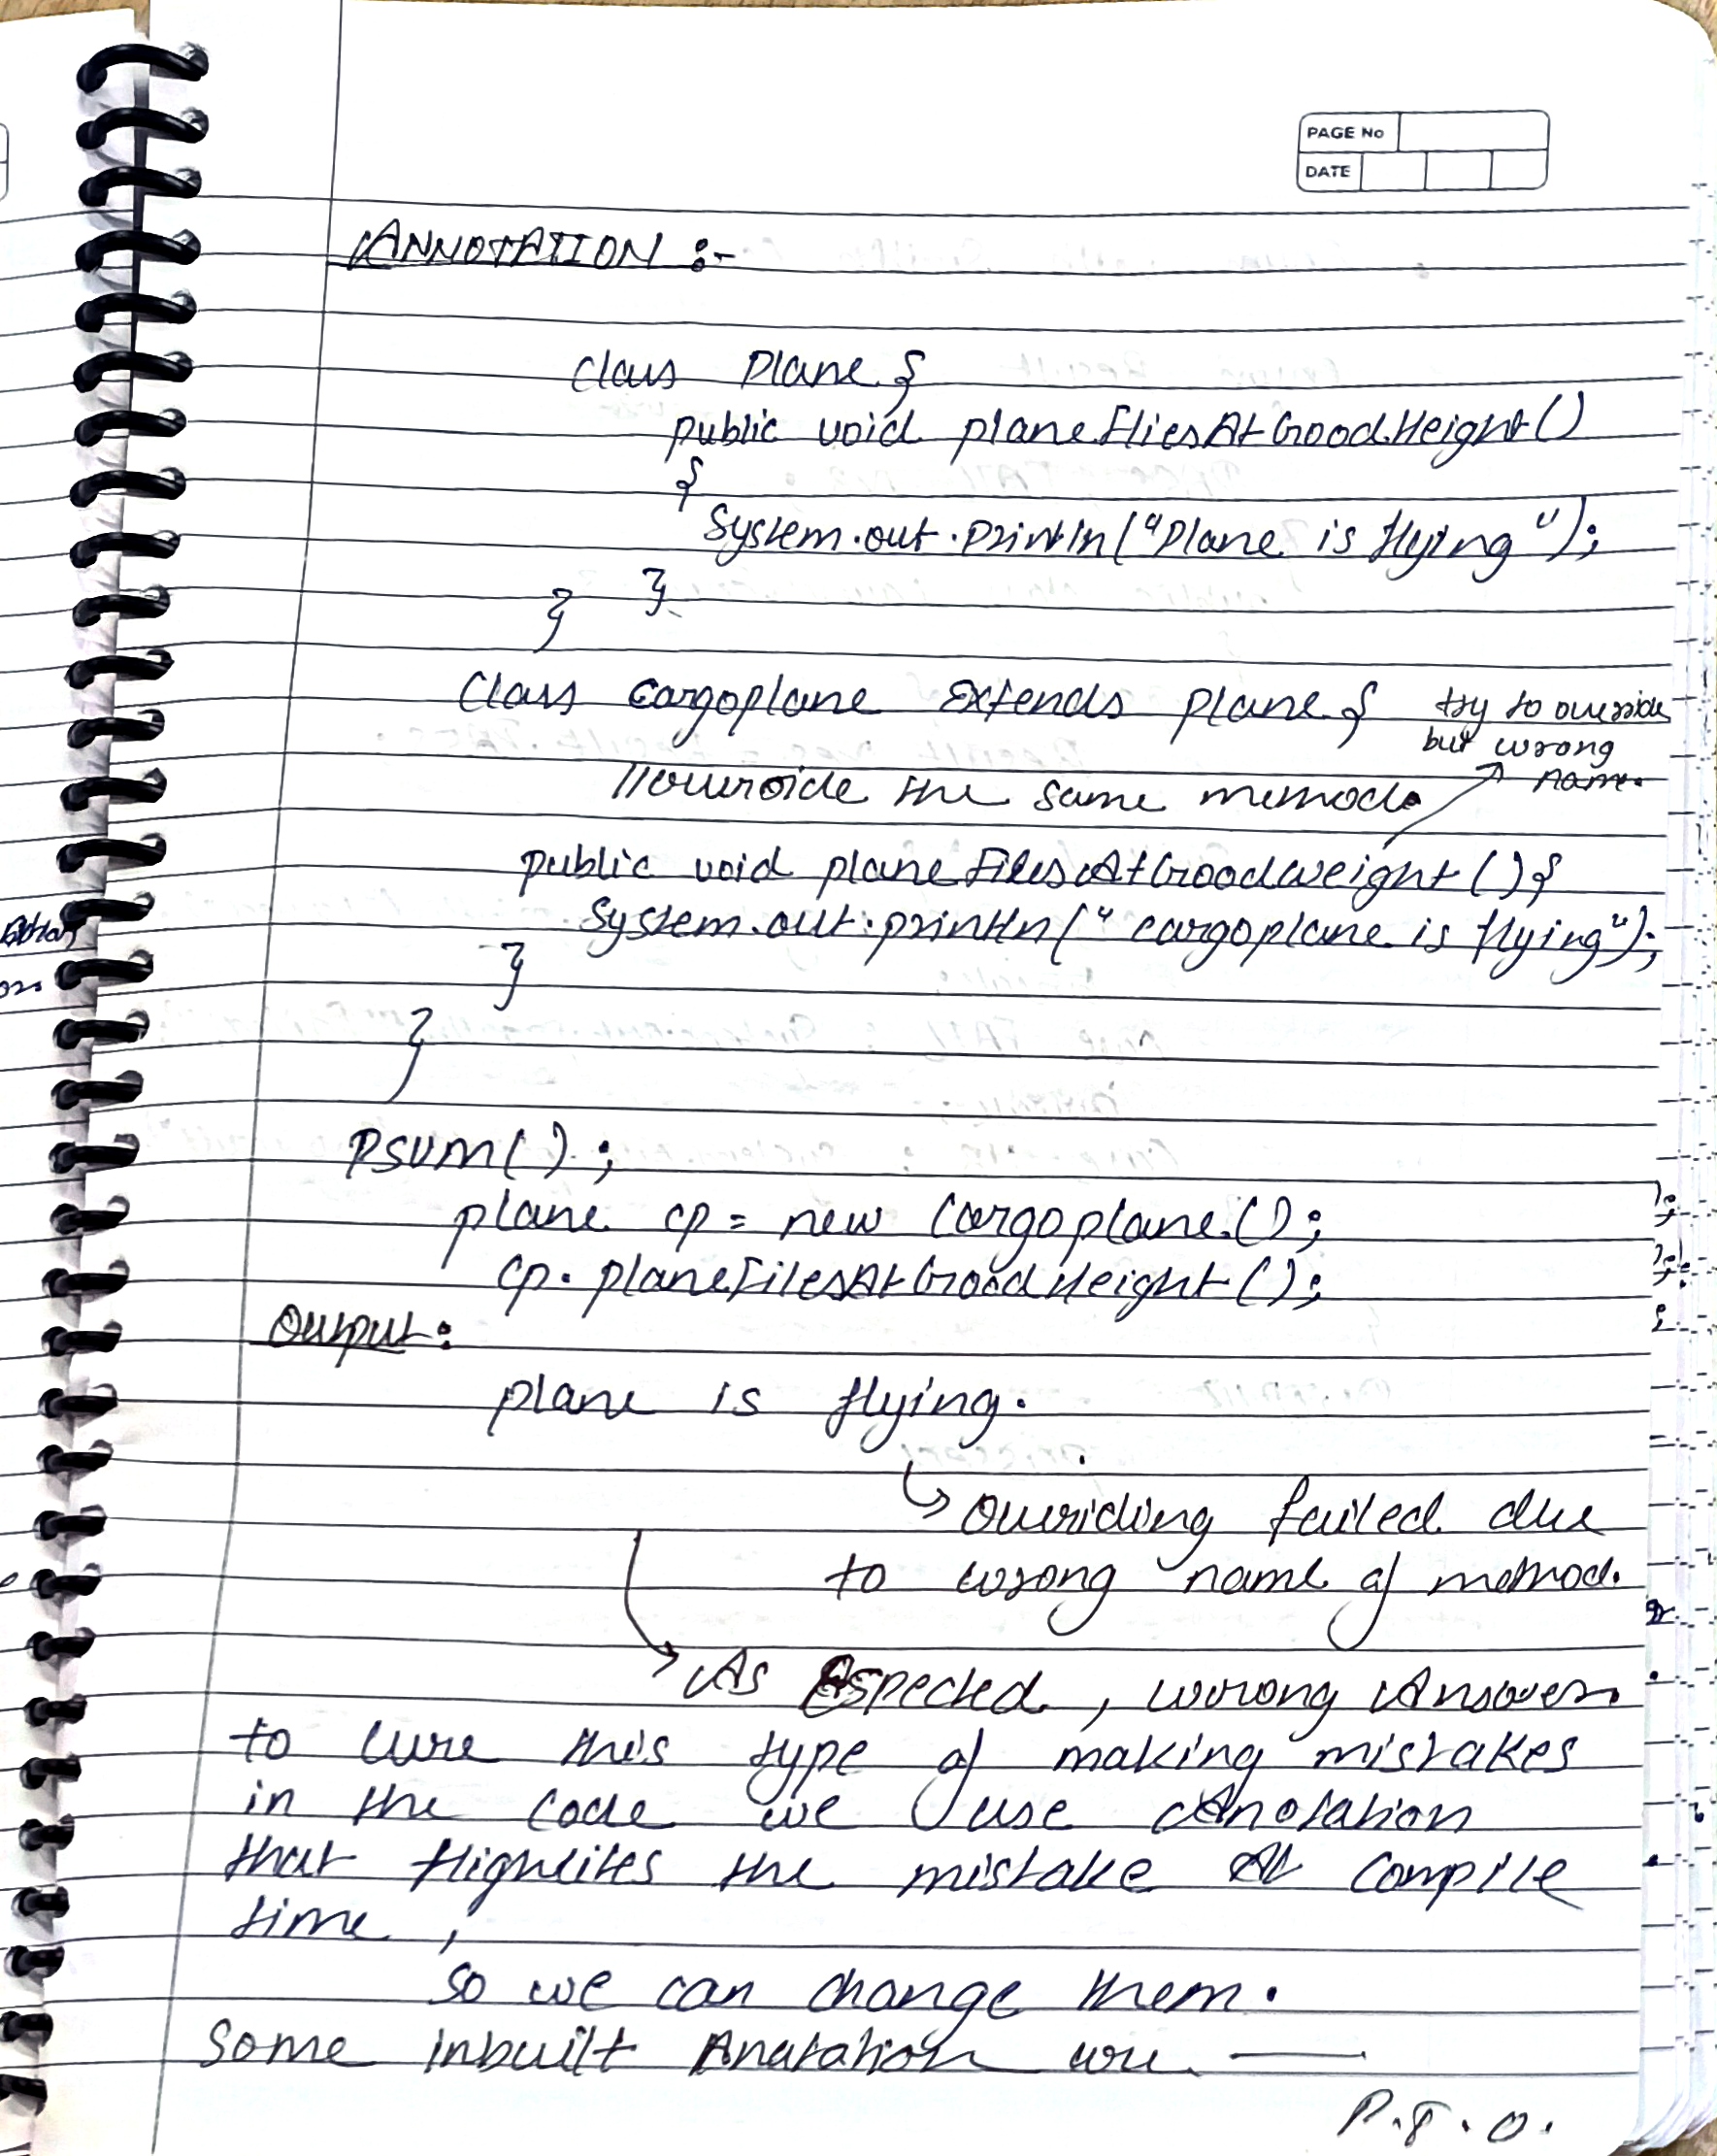 PAGE No
DATE
ANNOTATION :-
class Plane {
public void planeFliesAtGoodHeight()
{
System.out.println("Plane is flying");
}
}
Class cargoplane extends plane { try to override
but wrong
name.
//override the same method.
public void planeFilesAtGoodweight(){
System.out.println(" cargoplane is flying");
}
}
PSVM();
plane cp = new Cargoplane();
cp.planeFilesAtGoodHeight();
Output:
plane is flying.
↳ overiding failed due
to wrong name of method.
→ As Espected, wrong Answer
to cure this type of making mistakes
in the code we use Anotation
that Highlites the mistake At compile
time,
so we can change them.
Some inbuilt Anatation are —
P.T.O.